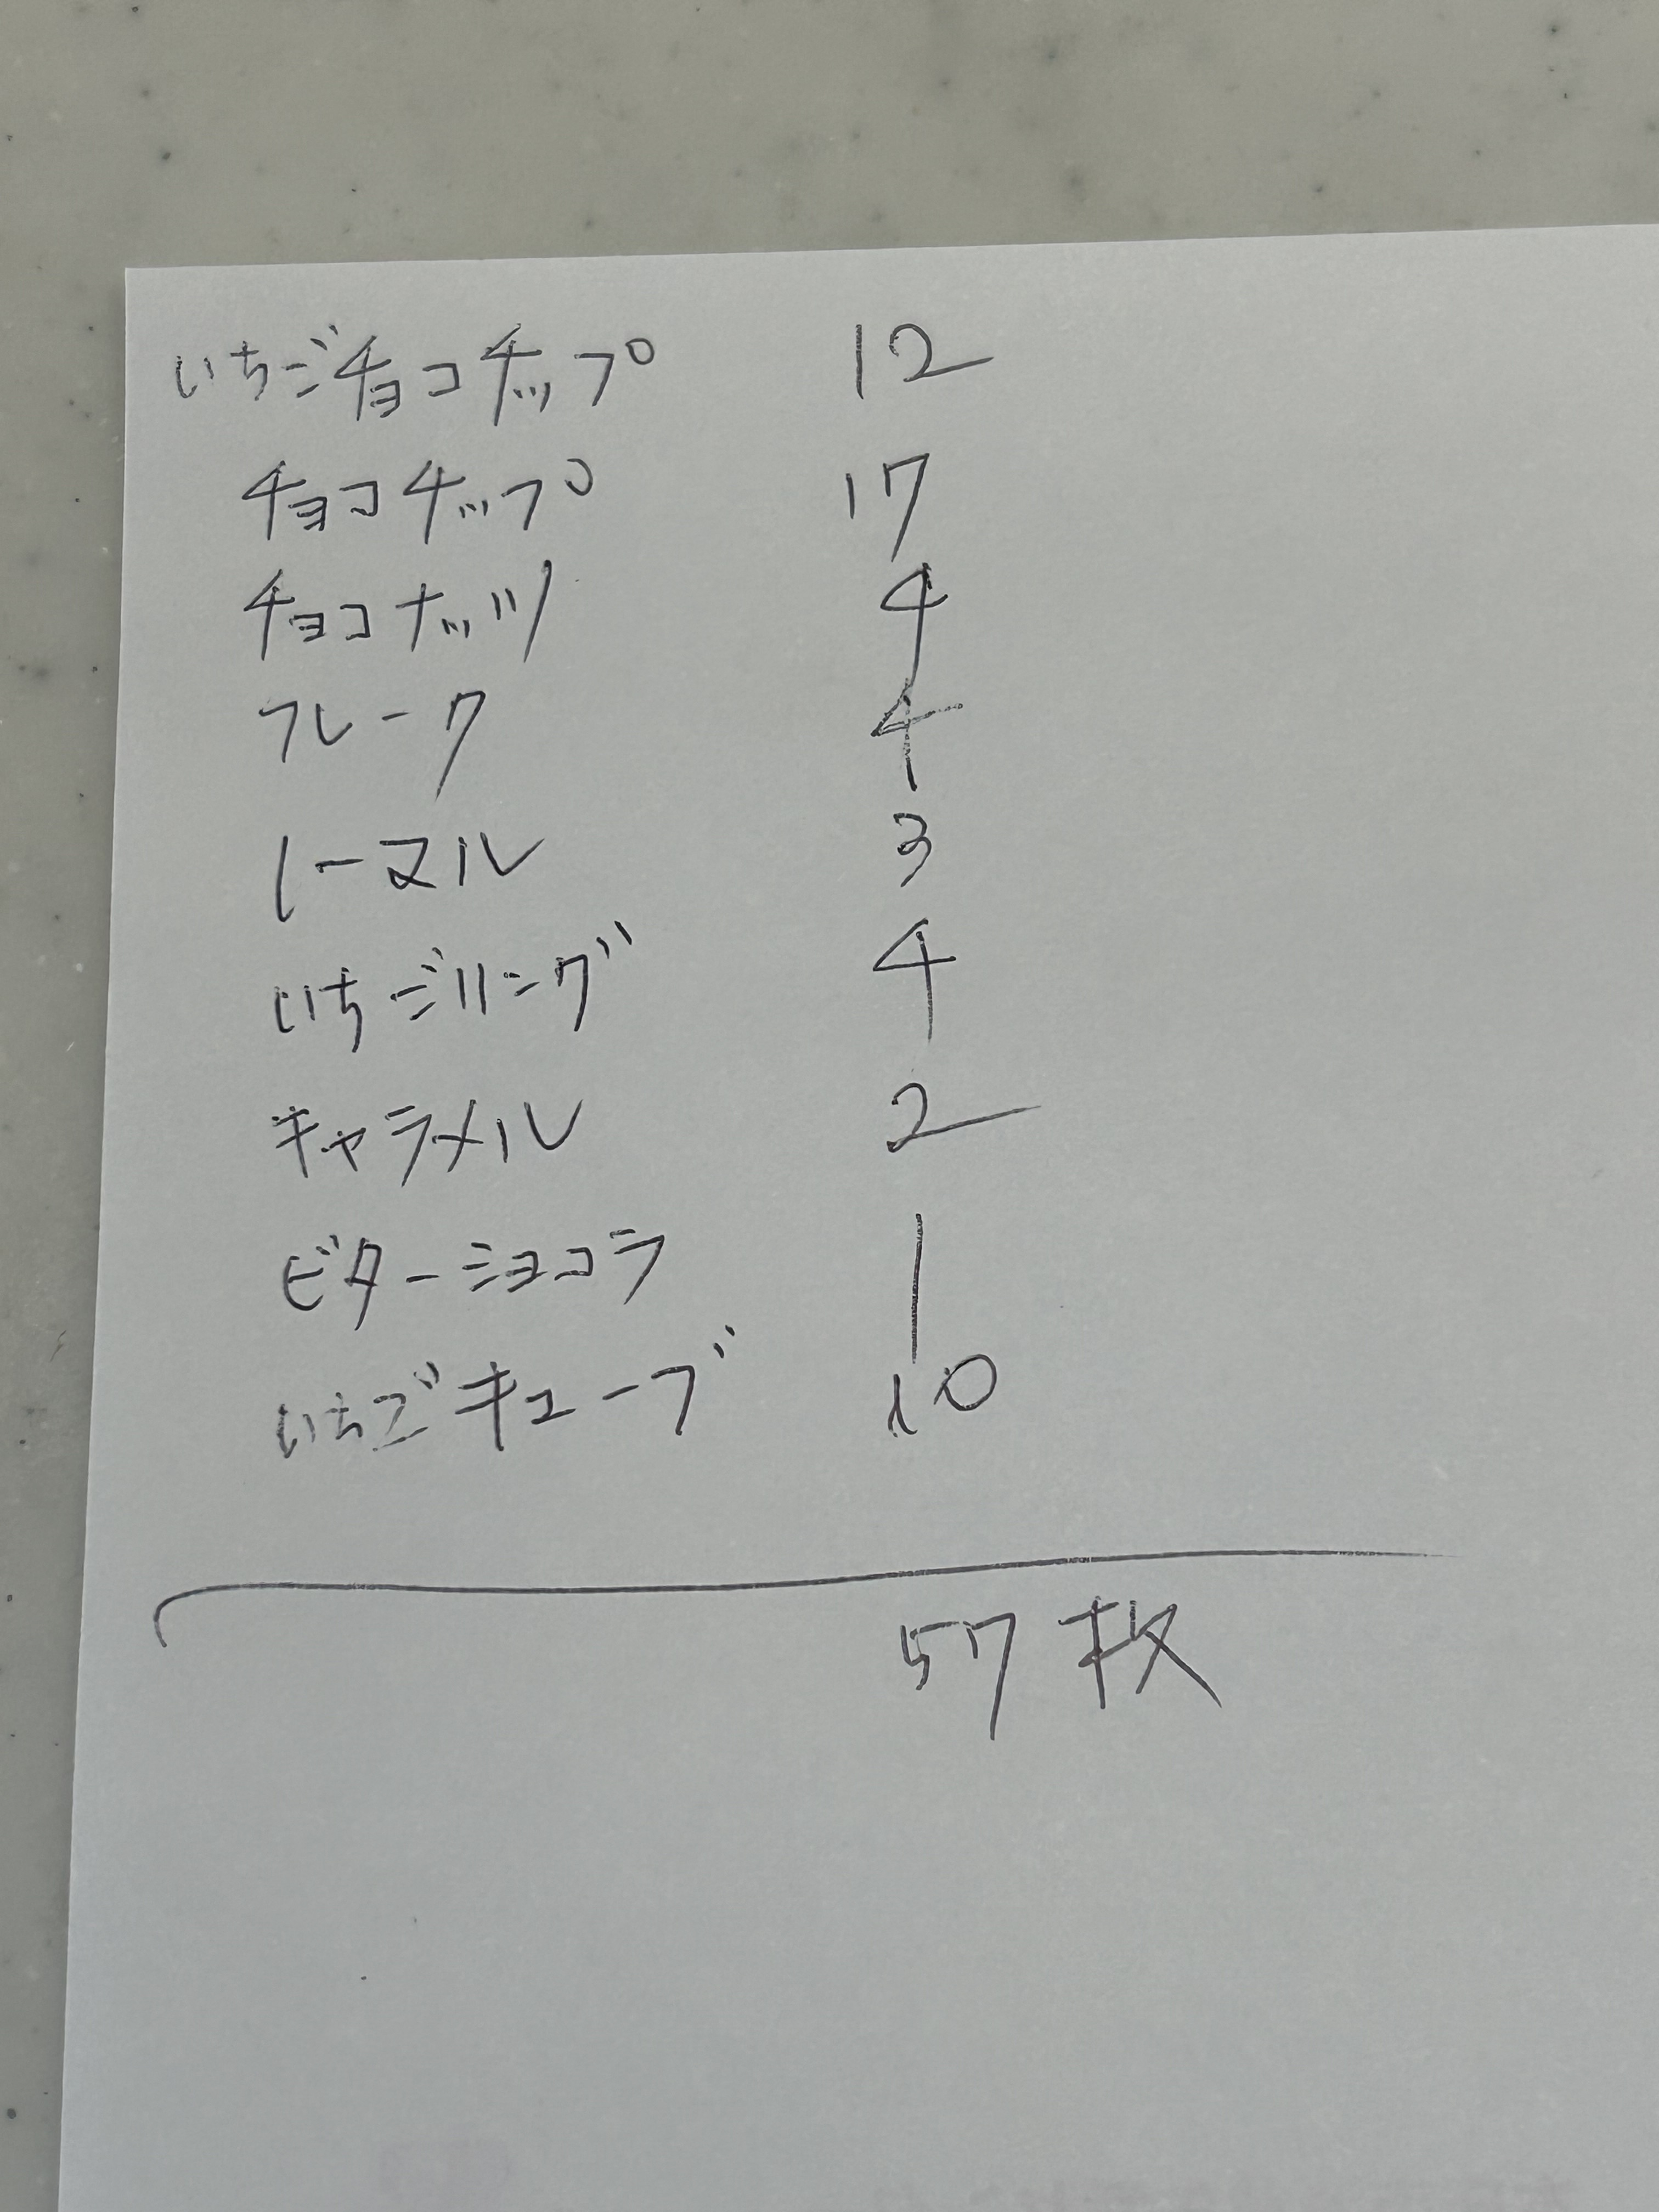 いちごチョコチップ 12
チョコチップ 17
チョコナッツ 4
フレーク 4
ノーマル 3
いちごリング 4
キャラメル 2
ビターショコラ 1
いちごキューブ 10
57枚